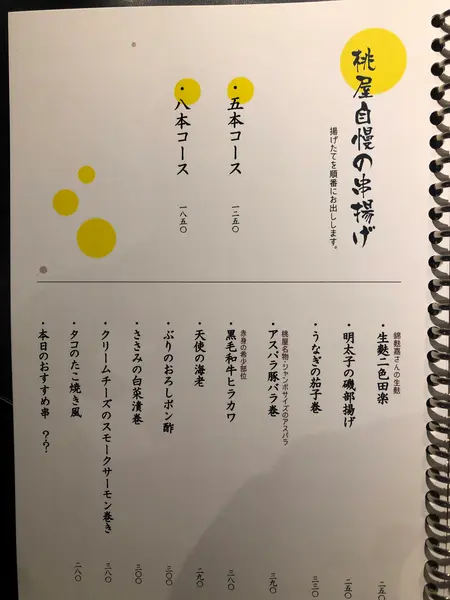 桃屋自慢の串揚げ
揚げたてを順番にお出しします。
・五本コース 一二五〇
・八本コース 一八五〇
錦麩嘉さんの生麩
・生麩二色田楽 二五〇
・明太子の磯部揚げ 二五〇
・うなぎの茄子巻 三三〇
桃屋名物・ジャンボサイズのアスパラ
・アスパラ豚バラ巻 三九〇
赤身の希少部位
・黒毛和牛ヒラカワ 三八〇
・天使の海老 二九〇
・ぶりのおろしポン酢 三〇〇
・ささみの白菜漬巻 三〇〇
・クリームチーズのスモークサーモン巻き 三八〇
・タコのたこ焼き風 二八〇
・本日のおすすめ串 ？？